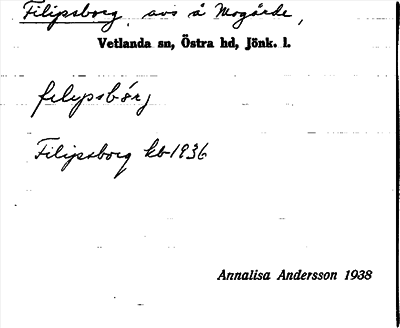 Filipsborg, avs å Mogärde,
Vetlanda sn, Östra hd, Jönk. l.
filipsbórj
Filipsborg kb 1936
Annalisa Andersson 1938